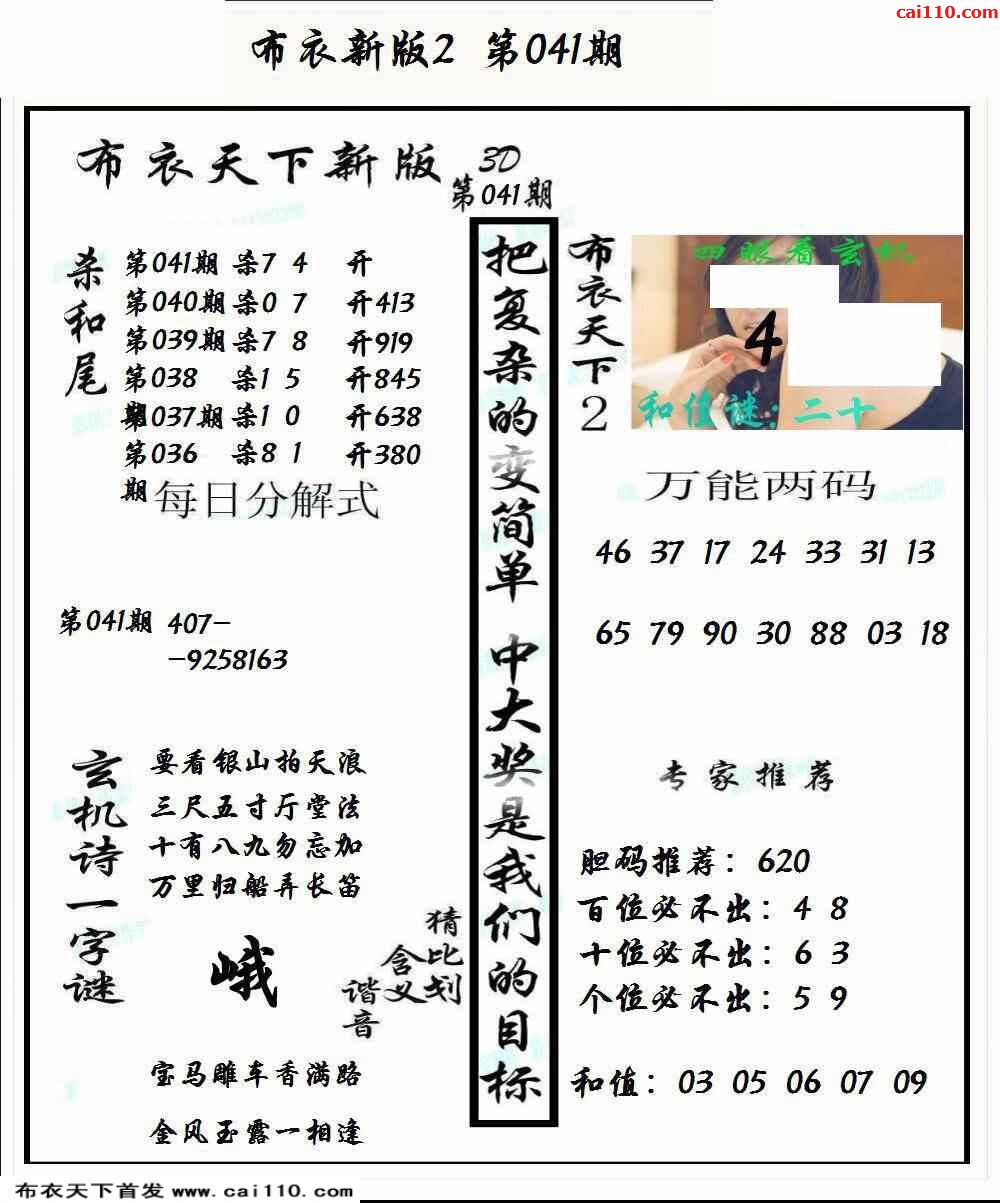 cai110.com
布衣新版2 第041期
布衣天下新版 3D
第041期
杀和尾
第041期 杀7 4 开
第040期 杀0 7 开413
第039期 杀7 8 开919
第038期 杀1 5 开845
第037期 杀1 0 开638
第036期 杀8 1 开380
每日分解式
第041期 407-
-9258163
玄机诗一字谜
要看银山拍天浪
三尺五寸厅堂法
十有八九勿忘加
万里归船弄长笛
峨
猜比划
含义
谐音
宝马雕车香满路
金风玉露一相逢
把复杂的变简单 中大奖是我们的目标
布衣天下2
四眼看玄机
4
和值谜:二十
万能两码
46 37 17 24 33 31 13
65 79 90 30 88 03 18
专家推荐
胆码推荐：620
百位必不出：4 8
十位必不出：6 3
个位必不出：5 9
和值：03 05 06 07 09
布衣天下首发 www.cai110.com